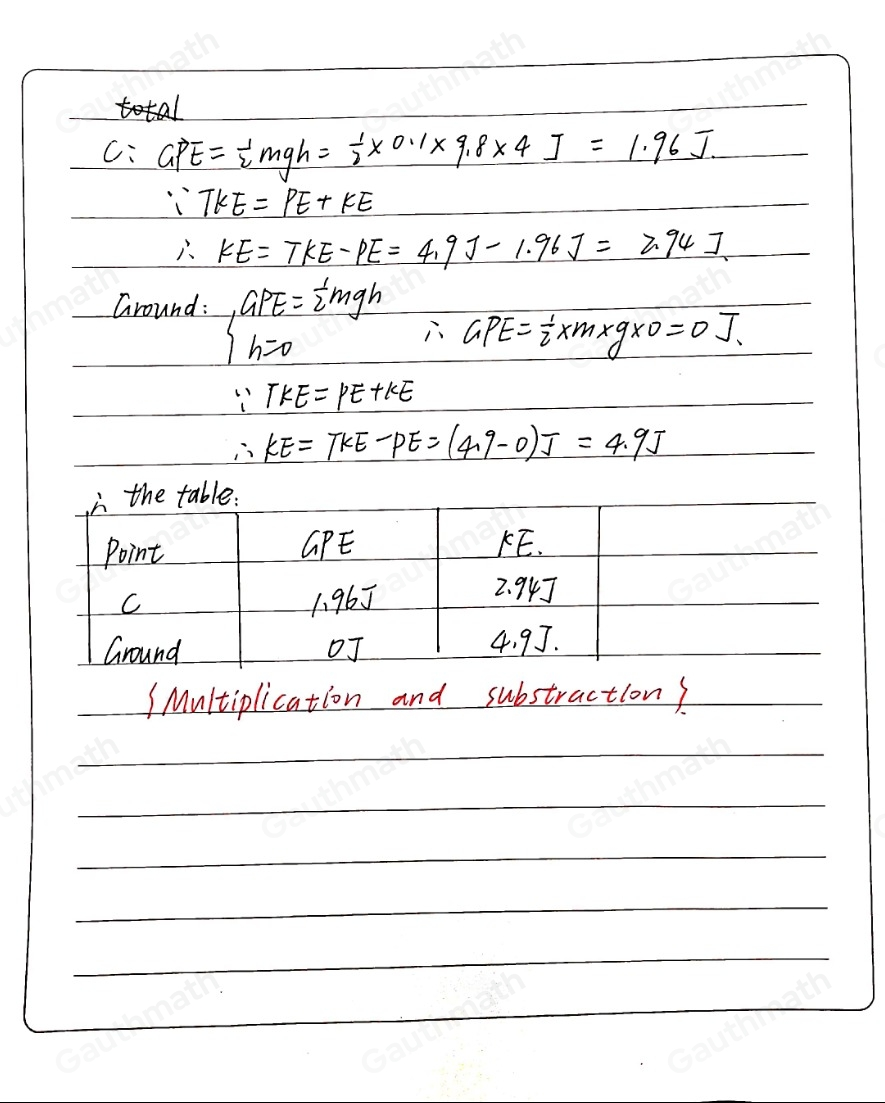 total
C: GPE = 1/2 mgh = 1/2 × 0.1 × 9.8 × 4 J = 1.96 J.
∵ TKE = PE + KE
∴ KE = TKE - PE = 4.9 J - 1.96 J = 2.94 J.
Ground: { GPE = 1/2 mgh
h=0 ∴ GPE = 1/2 × m × g × 0 = 0 J.
∵ TKE = PE + KE
∴ KE = TKE - PE = (4.9 - 0) J = 4.9 J
∴ the table:
Point GPE KE.
C 1.96J 2.94J
Ground 0J 4.9J.
{ Multiplication and substraction }
Gauthmath